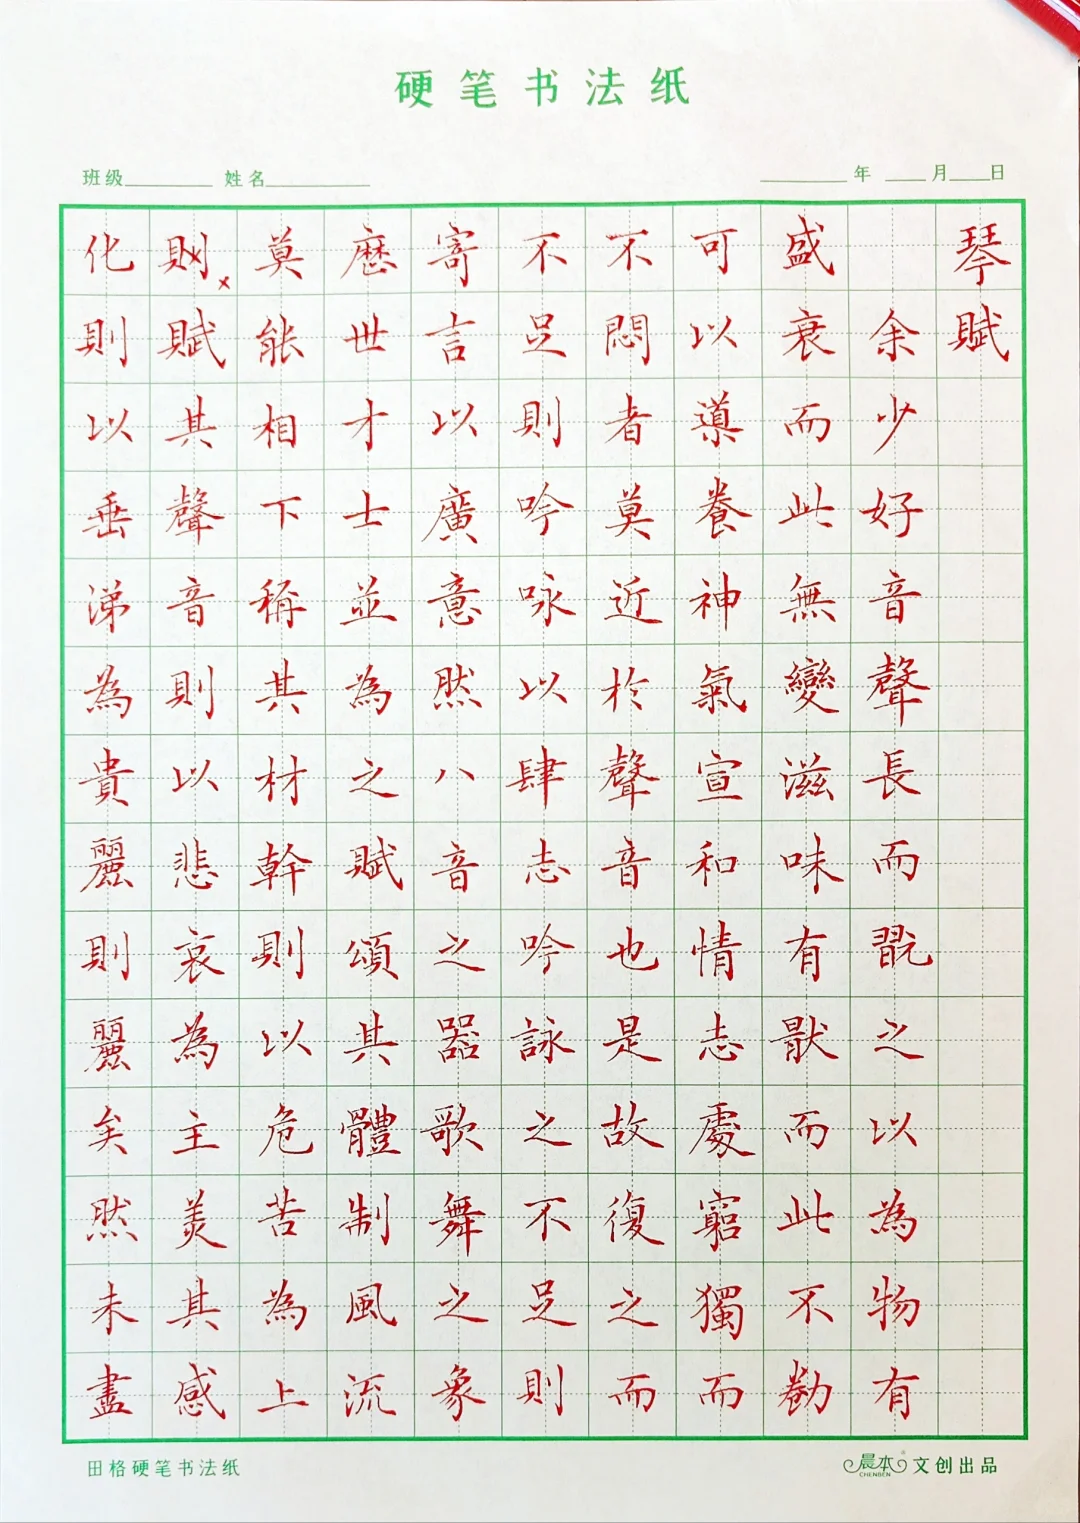 硬笔书法纸
班级 姓名 年 月 日
琴賦
余少好音聲長而翫之以為物有
盛衰而此無變滋味有猒而此不勌
可以導養神氣宣和情志處窮獨而
不悶者莫近於聲音也是故復之而
不足則吟咏以肆志吟詠之不足則
寄言以廣意然八音之器歌舞之象
歷世才士並為之賦頌其體制風流
莫能相下稱其材幹則以危苦為上
則×賦其聲音則以悲哀為主美其感
化則以垂涕為貴麗則麗矣然未盡
田格硬笔书法纸
晨本 CHENBEN 文创出品